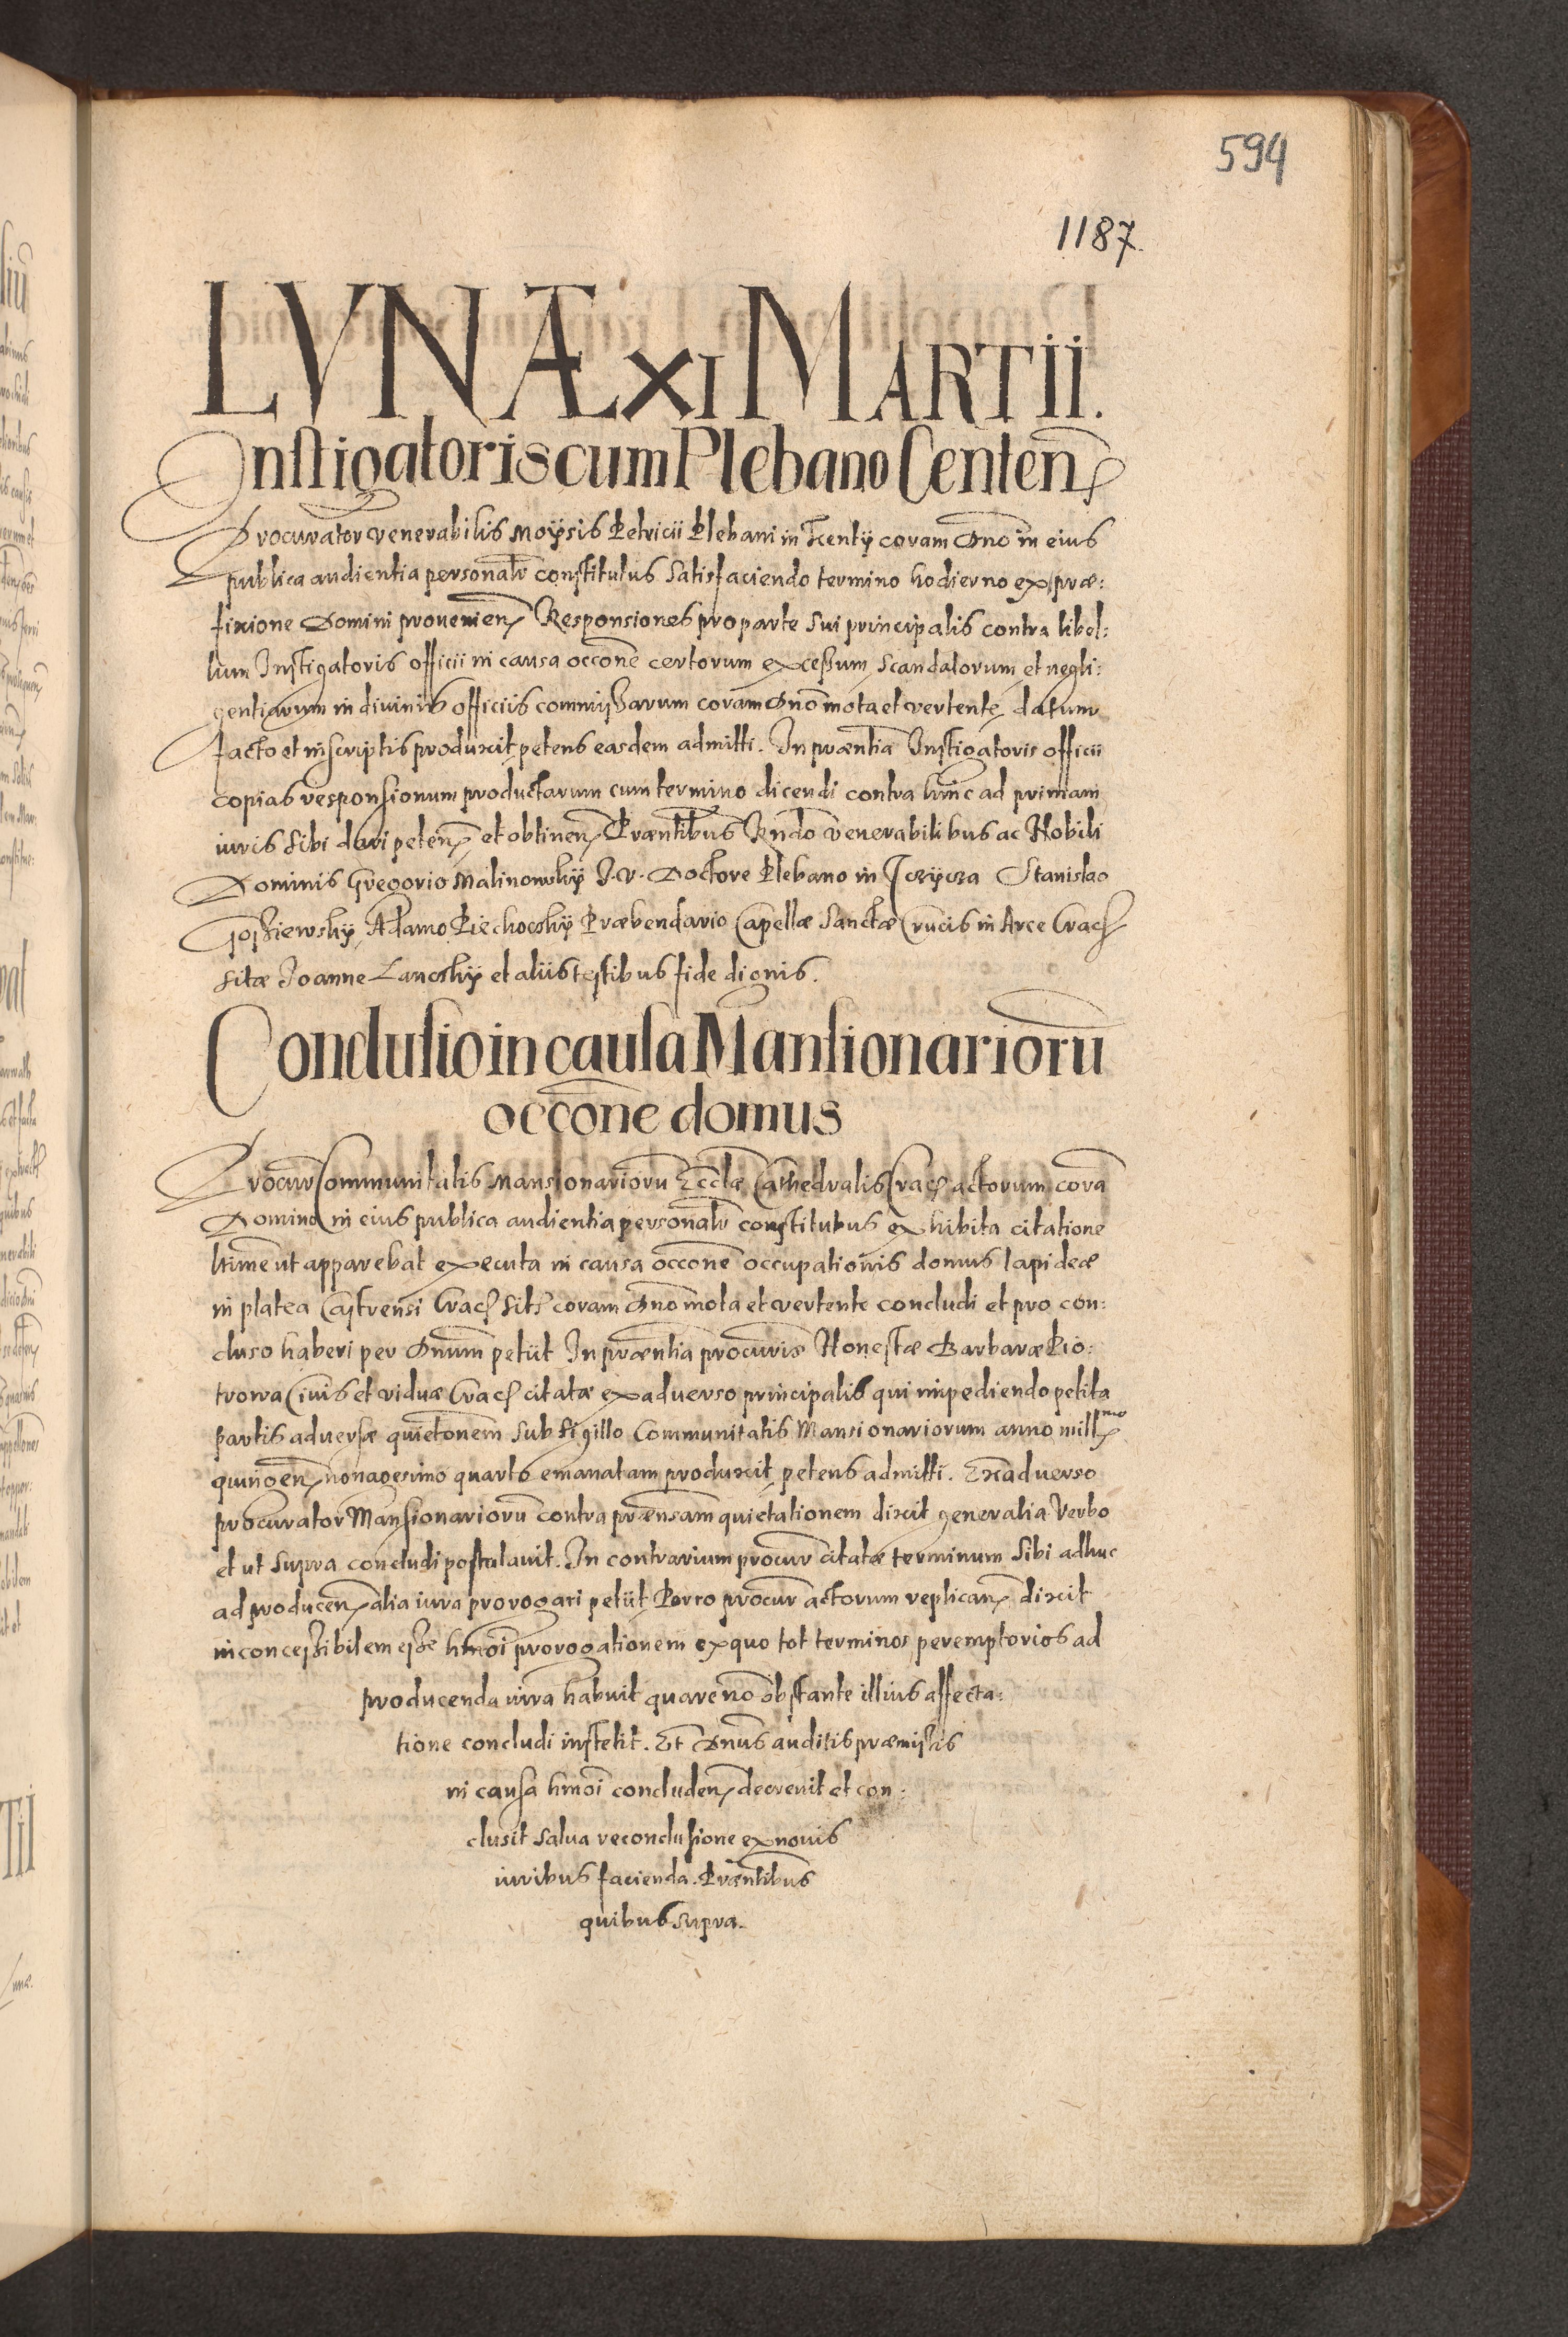 594
1187.
LVNÆ XI MARTII.
Instigatoris cum Plebano Centen
Procurator venerabilis Moysis Petricii Plebani in Kenty coram Dno in eius
publica audientia personalr constitutus satisfaciendo termino hodierno ex præ:
fixione Domini provenien Responsiones pro parte sui principalis contra libel:
lum Instigatoris officii in causa occone certorum excessum, scandalorum, et negli:
gentiarum in divinis officiis commissarum coram Dno mota et vertente, datum
facto et in scriptis produxit, petens easdem admitti. In præntia Instigatoris officii
copias responsionum productarum cum termino dicendi contra hinc ad primam
iuris sibi dari peten et obtinen Præntibus Rndo venerabilibus ac Nobili
Dominis Gregorio Malinowsky I. V. Doctore Plebano in Stanislao
Gosziewsky, Adamo Piechocsky Præbendario Capellæ Sanctæ Crucis in Arce Crac
sitæ Joanne Lancsky et aliis testibus fide dignis.
Conclusio in causa Mansionarioru
occone domus
Procur Communitatis Mansionarioru Ecclæ Cathedralis Crac actorum cora
Domino in eius publica audientia personalr constitutus exhibita citatione
ltime ut apparebat executa in causa occone occupationis domus lapideæ
in platea Castrensi Crac sit coram Dno mota et vertente concludi et pro con:
cluso haberi per Dnum petiit In præntia procuris Honestæ Barbaræ Pio:
trowa Civis et viduæ Crac citatæ ex adverso principalis qui impediendo petita
partis adversæ quietonem sub sigillo Communitatis Mansionariorum anno mill mo
quingen nonagesimo quarto emanatam produxit, petens admitti. Ex adverso
procurator Mansionarioru contra prænsam quietationem dixit generalia Verbo
et ut supra concludi postulavit. In contrarium procur citatæ terminum sibi adhuc
ad producen alia iura prorogari petiit, Porro procur actorum replican dixit
inconcessibilem esse hmoi prorogationem ex quo tot terminos peremptorios ad
producenda iura habuit quare no obstante illius affecta:
tione concludi institit. Et Dnus auditis præmissis
in causa hmoi concluden decrevit et con:
clusit salva reconclusione ex novis
iuribus facienda. Præntibus
quibus supra.